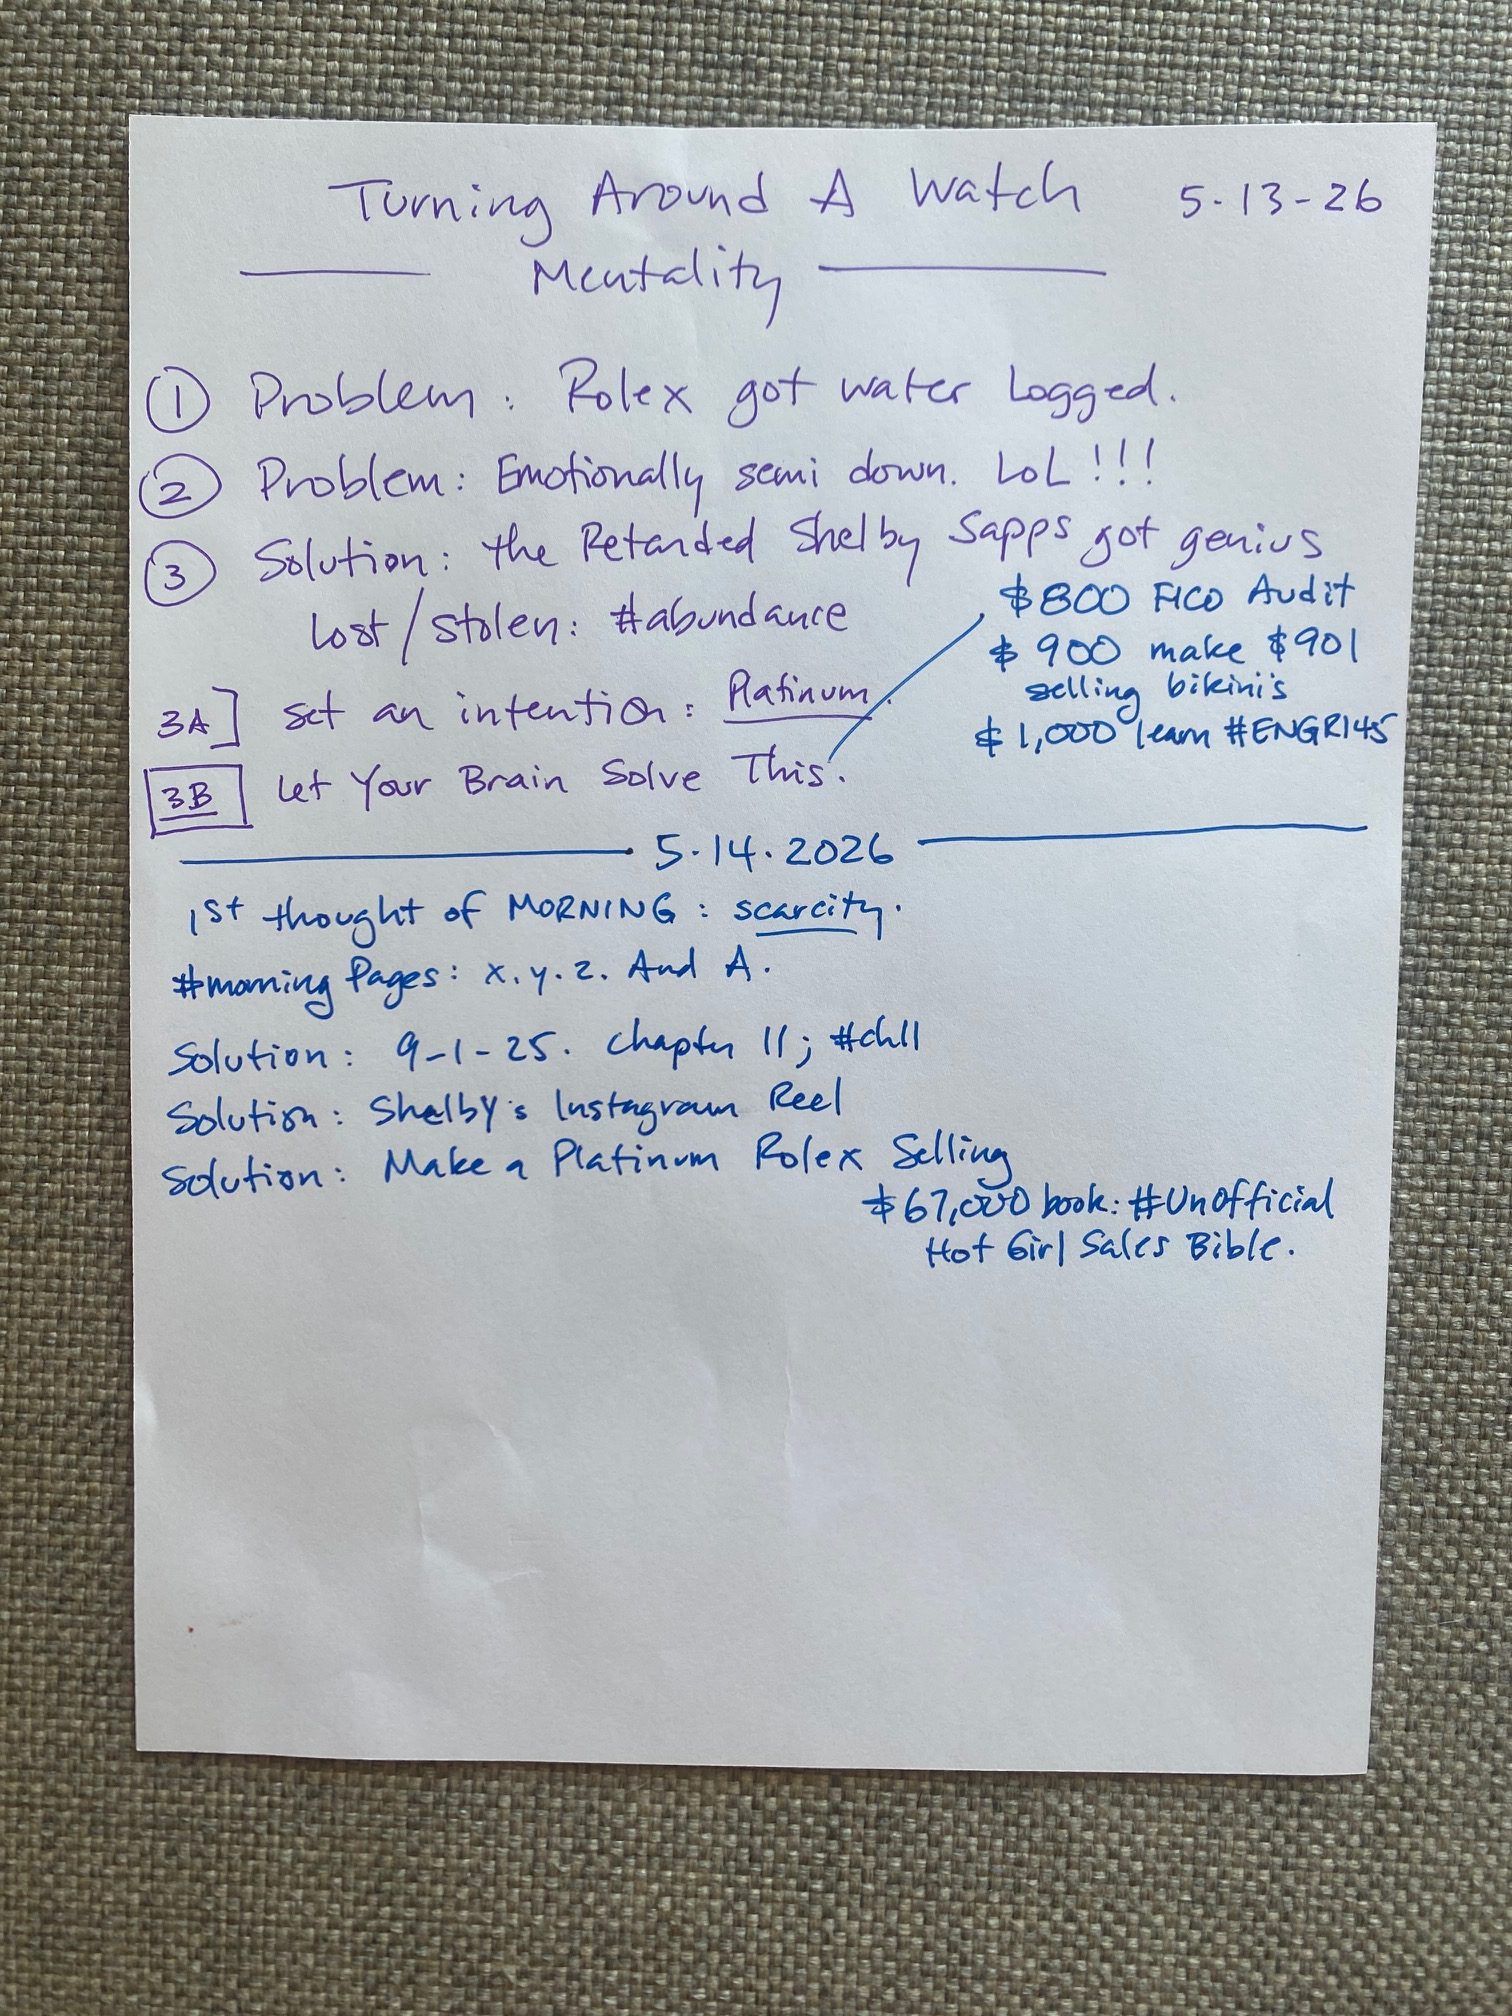 Turning Around A Watch 5-13-26
Mentality
1 Problem: Rolex got water Logged.
2 Problem: Emotionally semi down. LoL!!!
3 Solution: the Retarded Shelby Sapps got genius
Lost/stolen: #abundance
3A] set an intention: Platinum.
3B Let Your Brain Solve This.
$800 FICO Audit
$900 make $901
selling bikini's
$1,000 learn #ENGR145
5.14.2026
1st thought of MORNING: scarcity.
#morning Pages: x.y.z. And A.
Solution: 9-1-25. Chapter 11; #ch11
Solution: Shelby's Instagram Reel
Solution: Make a Platinum Rolex Selling
$67,000 book: #Unofficial
Hot Girl Sales Bible.